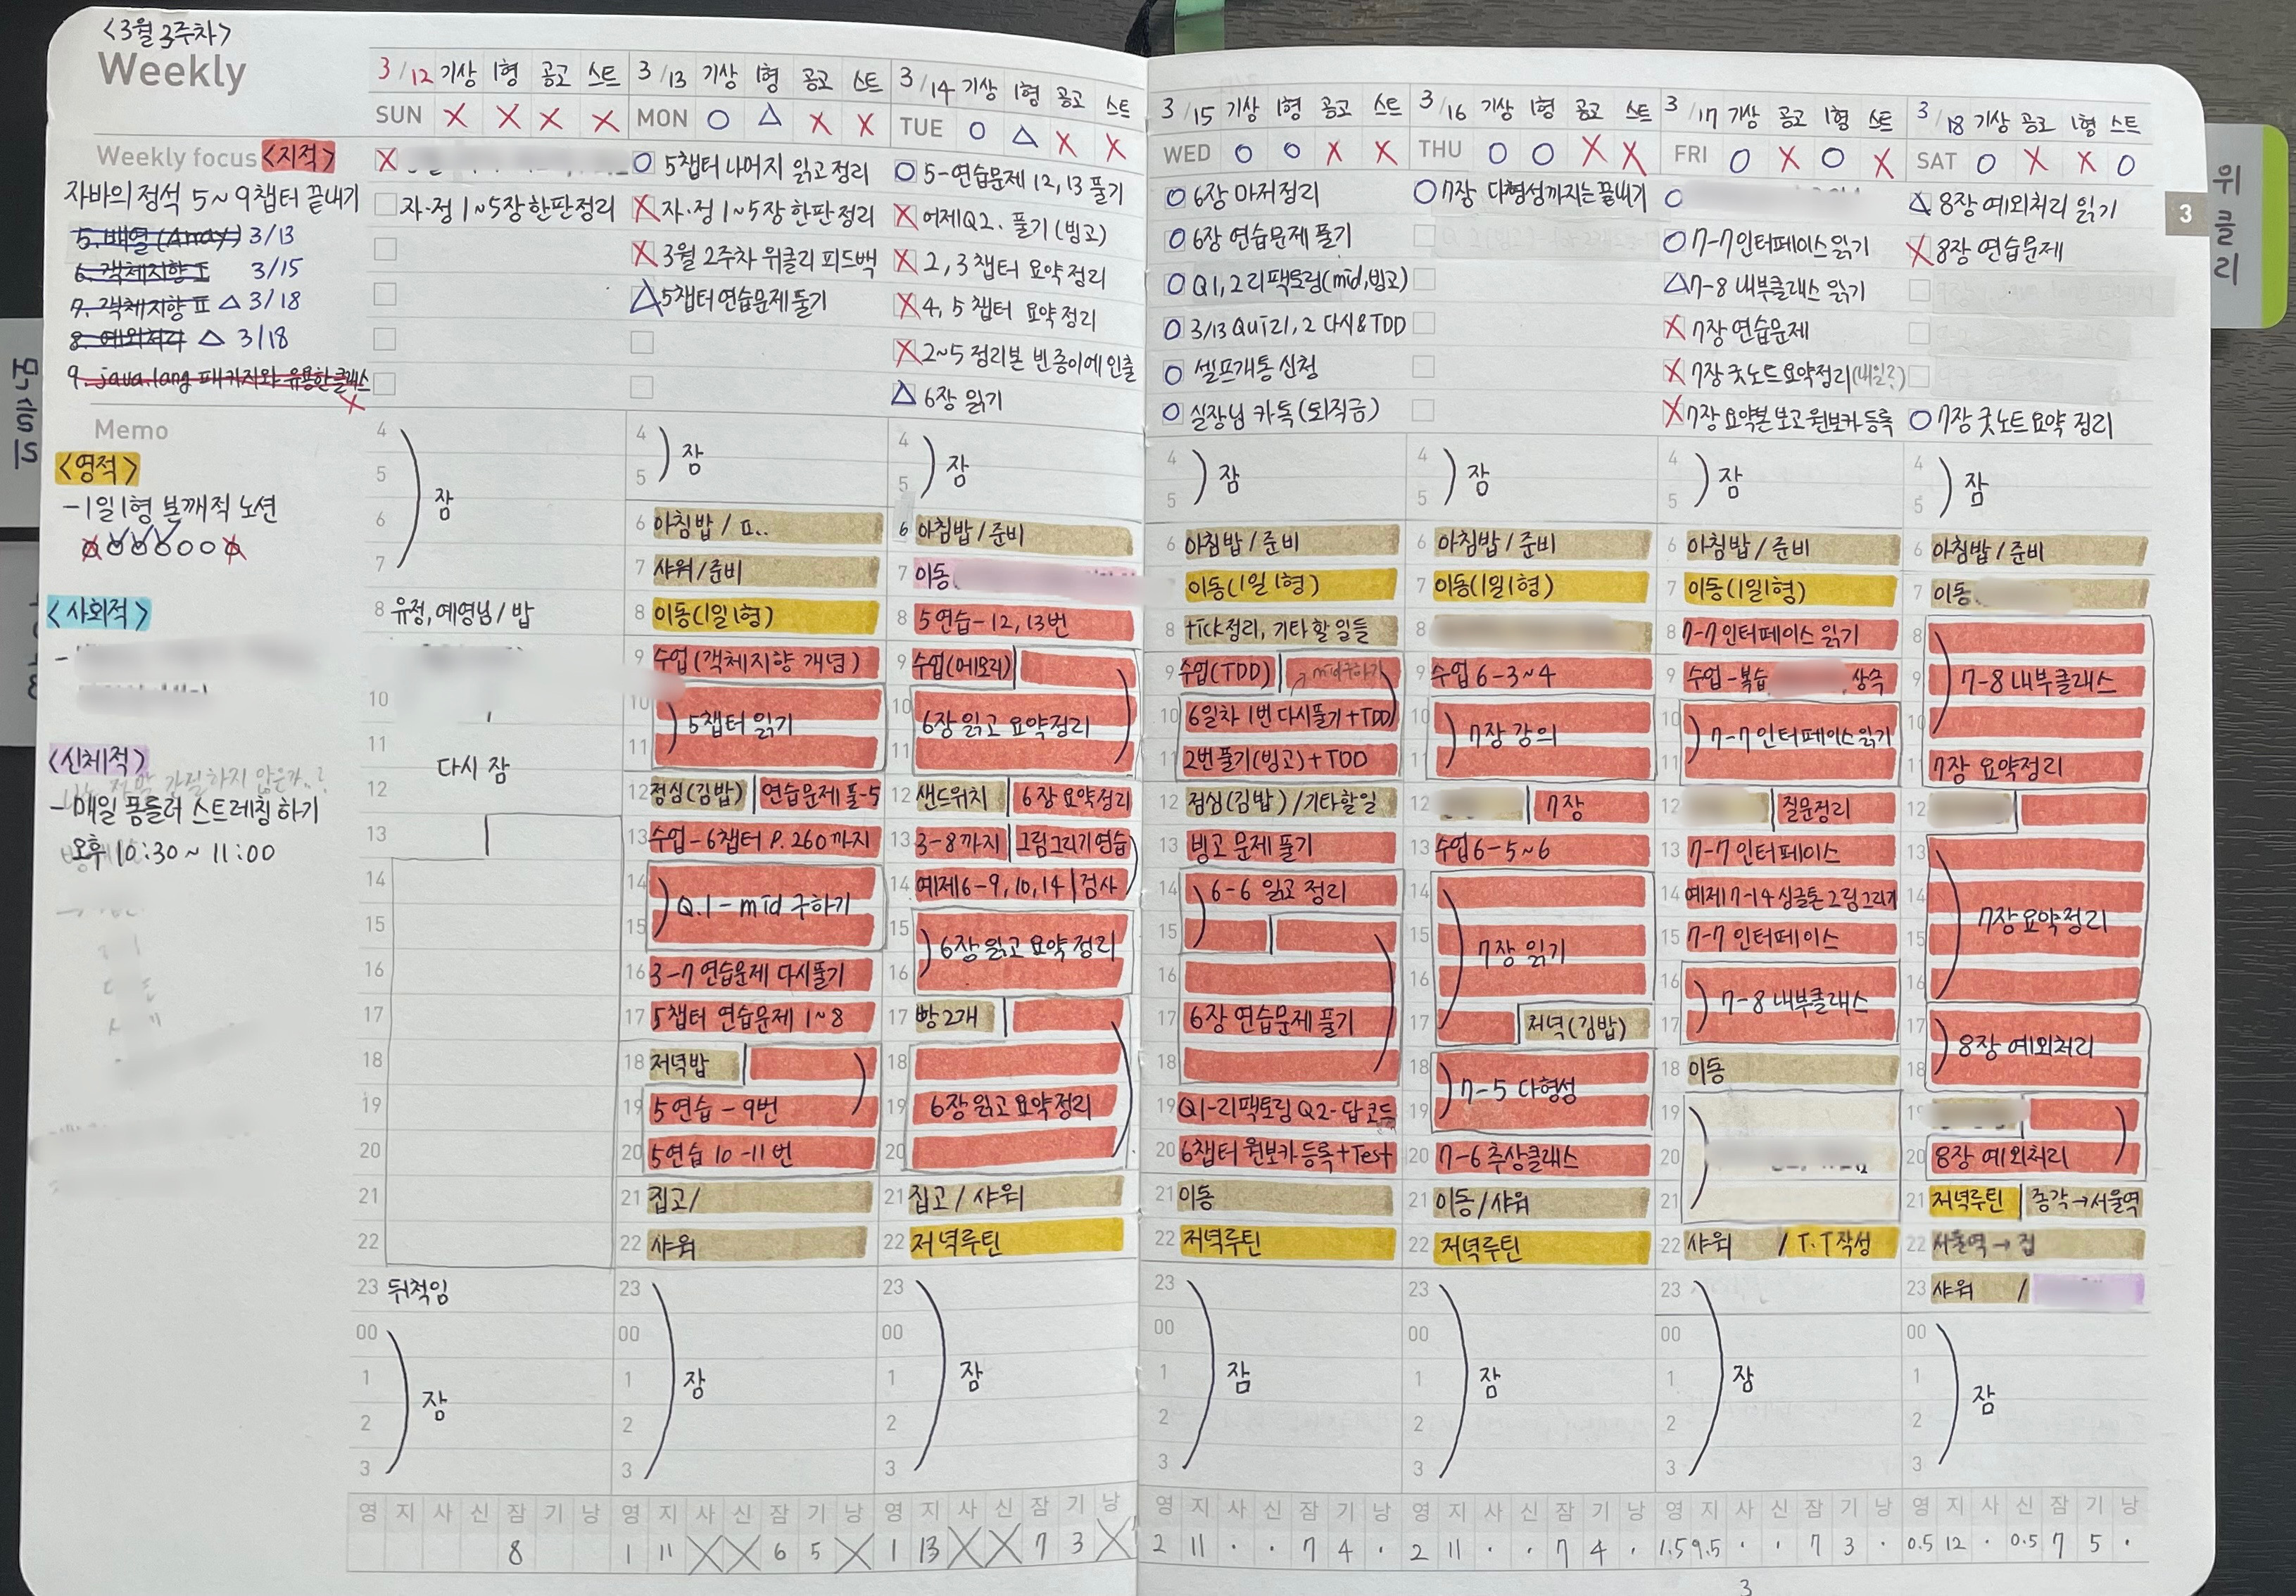 <3월 3주차>
Weekly
Weekly focus <지적>
자바의 정석 5~9챕터 끝내기
5. 배열(Array) 3/13
6. 객체지향 I 3/15
7. 객체지향 II △ 3/18
8. 예외처리 △ 3/18
9. java.lang 패키지와 유용한 클래스
X
Memo
<영적>
-1일1형 본깨적 노션
<사회적>
<신체적>
-매일 폼롤러 스트레칭 하기
오후 10:30~11:00
3/12 기상 1형 공고 스트
SUN X X X X
X
자·정 1~5장 한판정리
4
5
6
7
잠
8 유정, 예영님 / 밥
10
11
다시 잠
12
13
14
15
16
17
18
19
20
21
22
23 뒤척임
00
1
2
3
잠
영 지 사 신 잠 기 낭
8
3/13 기상 1형 공고 스트
MON O △ X X
O 5챕터 나머지 읽고 정리
X 자·정 1~5장 한판정리
X 3월 2주차 위클리 피드백
△ 5챕터 연습문제 풀기
4
5
잠
6 아침밥 / ㅍ..
7 샤워/준비
8 이동(1일1형)
9 수업(객체지향 개념)
10
11
5챕터 읽기
12 점심(김밥) | 연습문제 풀-5
13 수업-6챕터 P.260까지
14
15
Q.1 - mid 구하기
16 3-7 연습문제 다시풀기
17 5챕터 연습문제 1~8
18 저녁밥
19 5연습-9번
20 5연습 10-11번
21 집고/
22 샤워
23
00
1
2
3
잠
영 지 사 신 잠 기 낭
1 11 X X 6 5 X
3/14 기상 1형 공고 스트
TUE O △ X X
O 5-연습문제 12, 13 풀기
X 어제Q2. 풀기(빙고)
X 2, 3챕터 요약정리
X 4, 5챕터 요약정리
X 2~5 정리본 빈종이에 인출
△ 6장 읽기
4
5
잠
6 아침밥/준비
7 이동
8 5연습-12, 13번
9 수업(메모리)
10
11
6장 읽고 요약정리
12 샌드위치 | 6장 요약정리
13 3-8까지 | 그림그리기연습
14 예제6-9, 10, 14 | 검사
15
16
6장 읽고 요약 정리
17 빵2개
18
19
20
6장 읽고 요약정리
21 집고 / 샤워
22 저녁루틴
23
00
1
2
3
잠
영 지 사 신 잠 기 낭
1 13 X X 7 3 X
3/15 기상 1형 공고 스트
WED O O X X
O 6장 마저정리
O 6장 연습문제 풀기
O Q1, 2 리팩토링(mid, 빙고)
O 3/13 Quiz1, 2 다시&TDD
O 셀프개통 신청
O 실장님 카톡(퇴직금)
4
5
잠
6 아침밥/준비
7 이동(1일1형)
8 tick정리, 기타 할 일들
9 수업(TDD) | mid구하기
10 6일차 1번 다시풀기+TDD
11 2번풀기(빙고)+TDD
12 점심(김밥)/기타할일
13 빙고 문제 풀기
14 6-6 읽고 정리
15
16
17 6장 연습문제 풀기
18
19 Q1-리팩토링 Q2-답코드
20 6챕터 원보카등록+Test
21 이동
22 저녁루틴
23
00
1
2
3
잠
영 지 사 신 잠 기 낭
2 11 · · 7 4 ·
3/16 기상 1형 공고 스트
THU O O X X
O 7장 다형성까지는 끝내기
4
5
잠
6 아침밥/준비
7 이동(1일1형)
8
9 수업 6-3~4
10
11
7장 강의
12 7장
13 수업 6-5~6
14
15
16
7장 읽기
17 저녁(김밥)
18
19
7-5 다형성
20 7-6 추상클래스
21 이동/샤워
22 저녁루틴
23
00
1
2
3
잠
영 지 사 신 잠 기 낭
2 11 · · 7 4 ·
3/17 기상 공고 1형 스트
FRI O X O X
O
O 7-7 인터페이스 읽기
△ 7-8 내부클래스 읽기
X 7장 연습문제
X 7장 굿노트요약정리(내일?)
X 7장 요약본 보고 원보카 등록
4
5
잠
6 아침밥/준비
7 이동(1일1형)
8 7-7 인터페이스 읽기
9 수업-복습 상속
10
11
7-7 인터페이스읽기
12 질문정리
13 7-7 인터페이스
14 예제7-14 싱글톤 그림그리기
15 7-7 인터페이스
16
17
7-8 내부클래스
18 이동
19
20
21
22 샤워 / T.T작성
23
00
1
2
3
잠
영 지 사 신 잠 기 낭
1.5 9.5 · · 7 3 ·
3/18 기상 공고 1형 스트
SAT O X X O
△ 8장 예외처리 읽기
X 8장 연습문제
O 7장 굿노트 요약 정리
4
5
잠
6 아침밥/준비
7 이동
8
9
10
7-8 내부클래스
11 7장 요약정리
12
13
14
15
16
7장 요약정리
17
18
8장 예외처리
19
20 8장 예외처리
21 저녁루틴 | 종각→서울역
22 서울역→집
23 샤워 /
00
1
2
3
잠
영 지 사 신 잠 기 낭
0.5 12 · 0.5 7 5 ·
3
3
위클리